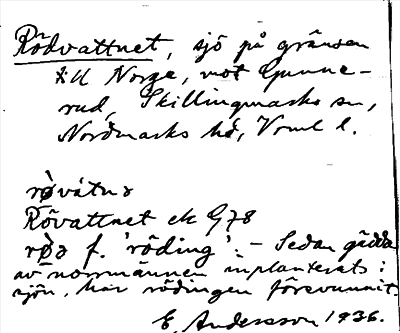 Rödvattnet, sjö på gränsen
till Norge, mot Gunne-
rud, Skillingmarks sn,
Nordmarks hd, Vrml l.
røvátnə
Rövattnet ek G78
rø̀ə f. 'röding'. - Sedan gädda
av norrmännen inplanterats i
sjön, har rödingen försvunnit.
E. Andersson 1936.